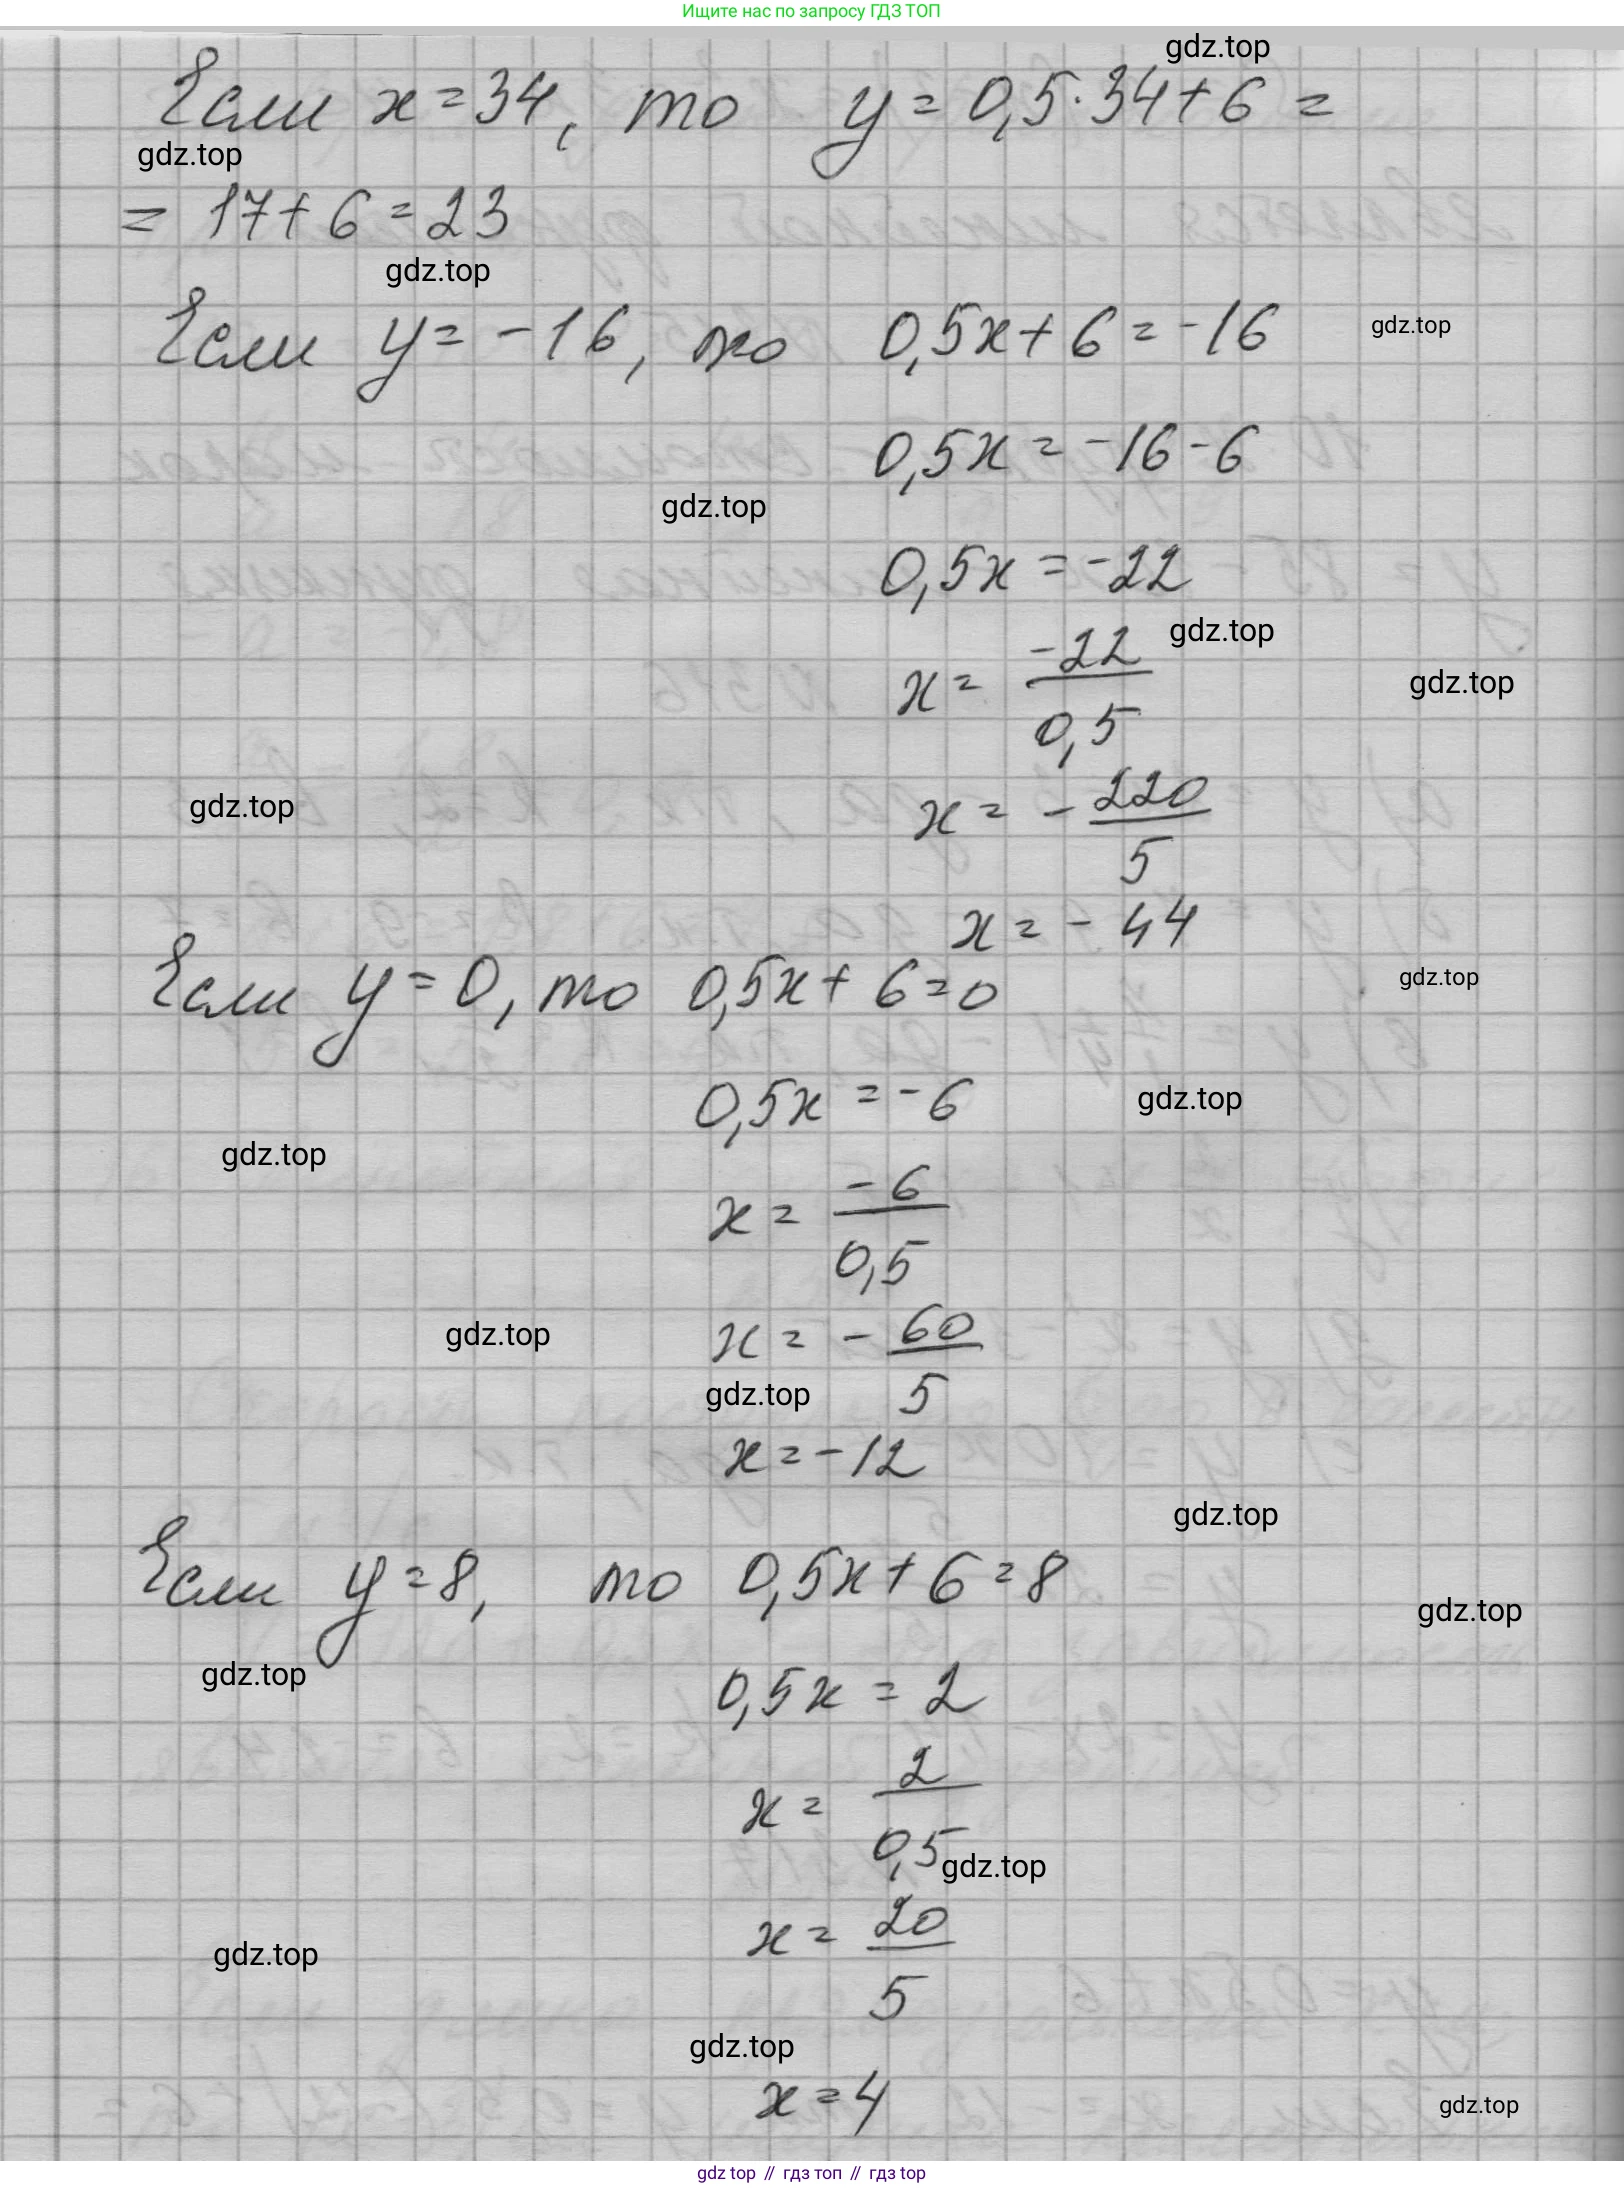 Ищите нас по запросу ГДЗ ТОП
gdz.top
Если x=34, то y=0,5·34+6=
gdz.top
=17+6=23
gdz.top
Если y=-16, то 0,5x+6=-16
gdz.top
0,5x=-16-6
gdz.top
0,5x=-22
gdz.top
x=-22/0,5
gdz.top
gdz.top
x=-220/5
x=-44
Если y=0, то 0,5x+6=0
gdz.top
0,5x=-6
gdz.top
gdz.top
x=-6/0,5
gdz.top
x=-60/5
gdz.top
x=-12
gdz.top
Если y=8, то 0,5x+6=8
gdz.top
gdz.top
0,5x=2
x=2/0,5
gdz.top
x=20/5
gdz.top
gdz.top
x=4
gdz.top
gdz top // гдз топ // гдз top